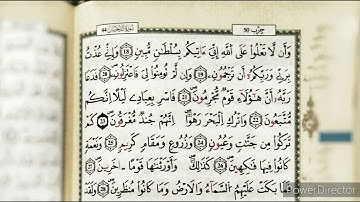 حزب 50
سورة الدخان 44
وَأَن لَّا تَعْلُواْ عَلَى اَللَّهِ إِنِّيَ ءَاتِيكُم بِسُلْطَٰنٖ مُّبِينٖ 18 وَإِنِّے عُذْتُ
بِرَبِّے وَرَبِّكُمُۥٓ أَن تَرْجُمُونِ 19 وَإِن لَّمْ تُومِنُواْ لِے فَاعْتَزِلُونِ 20 فَدَعَا
رَبَّهُۥٓ أَنَّ هَٰٓؤُلَآءِ قَوْمٞ مُّجْرِمُونَ 21 فَاسْرِ بِعِبَادِے لَيْلًا اِنَّكُم
مُّتَّبَعُونَ 22 وَاتْرُكِ اِلْبَحْرَ رَهْوًا اِنَّهُمْ جُندٞ مُّغْرَقُونَ 23 كَمْ
تَرَكُواْ مِن جَنَّٰتٖ وَعُيُونٖ 24 وَزُرُوعٖ وَمَقَامٖ كَرِيمٖ 25 وَنَعْمَةٖ
كَانُواْ فِيهَا فَٰكِهِينَ 26 كَذَٰلِكَ وَأَوْرَثْنَٰهَا قَوْمًا اٰخَرِينَ 27
فَمَا بَكَتْ عَلَيْهِمُ اُلسَّمَآءُ وَالَارْضُ وَمَا كَانُواْ مُنظَرِينَ 28 وَلَقَدْ
PowerDirector